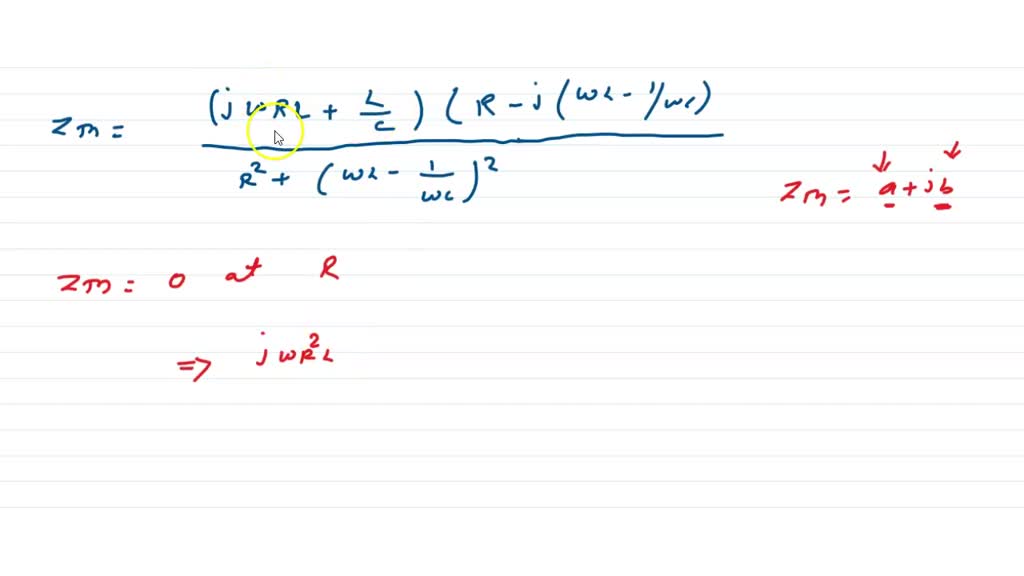 Zm = (jωRL + L/C) (R - j(ωL - 1/ωC)
R² + (ωL - 1/ωC)²
Zm = a + jb
Zm = 0 at R
⇒ jωR²L